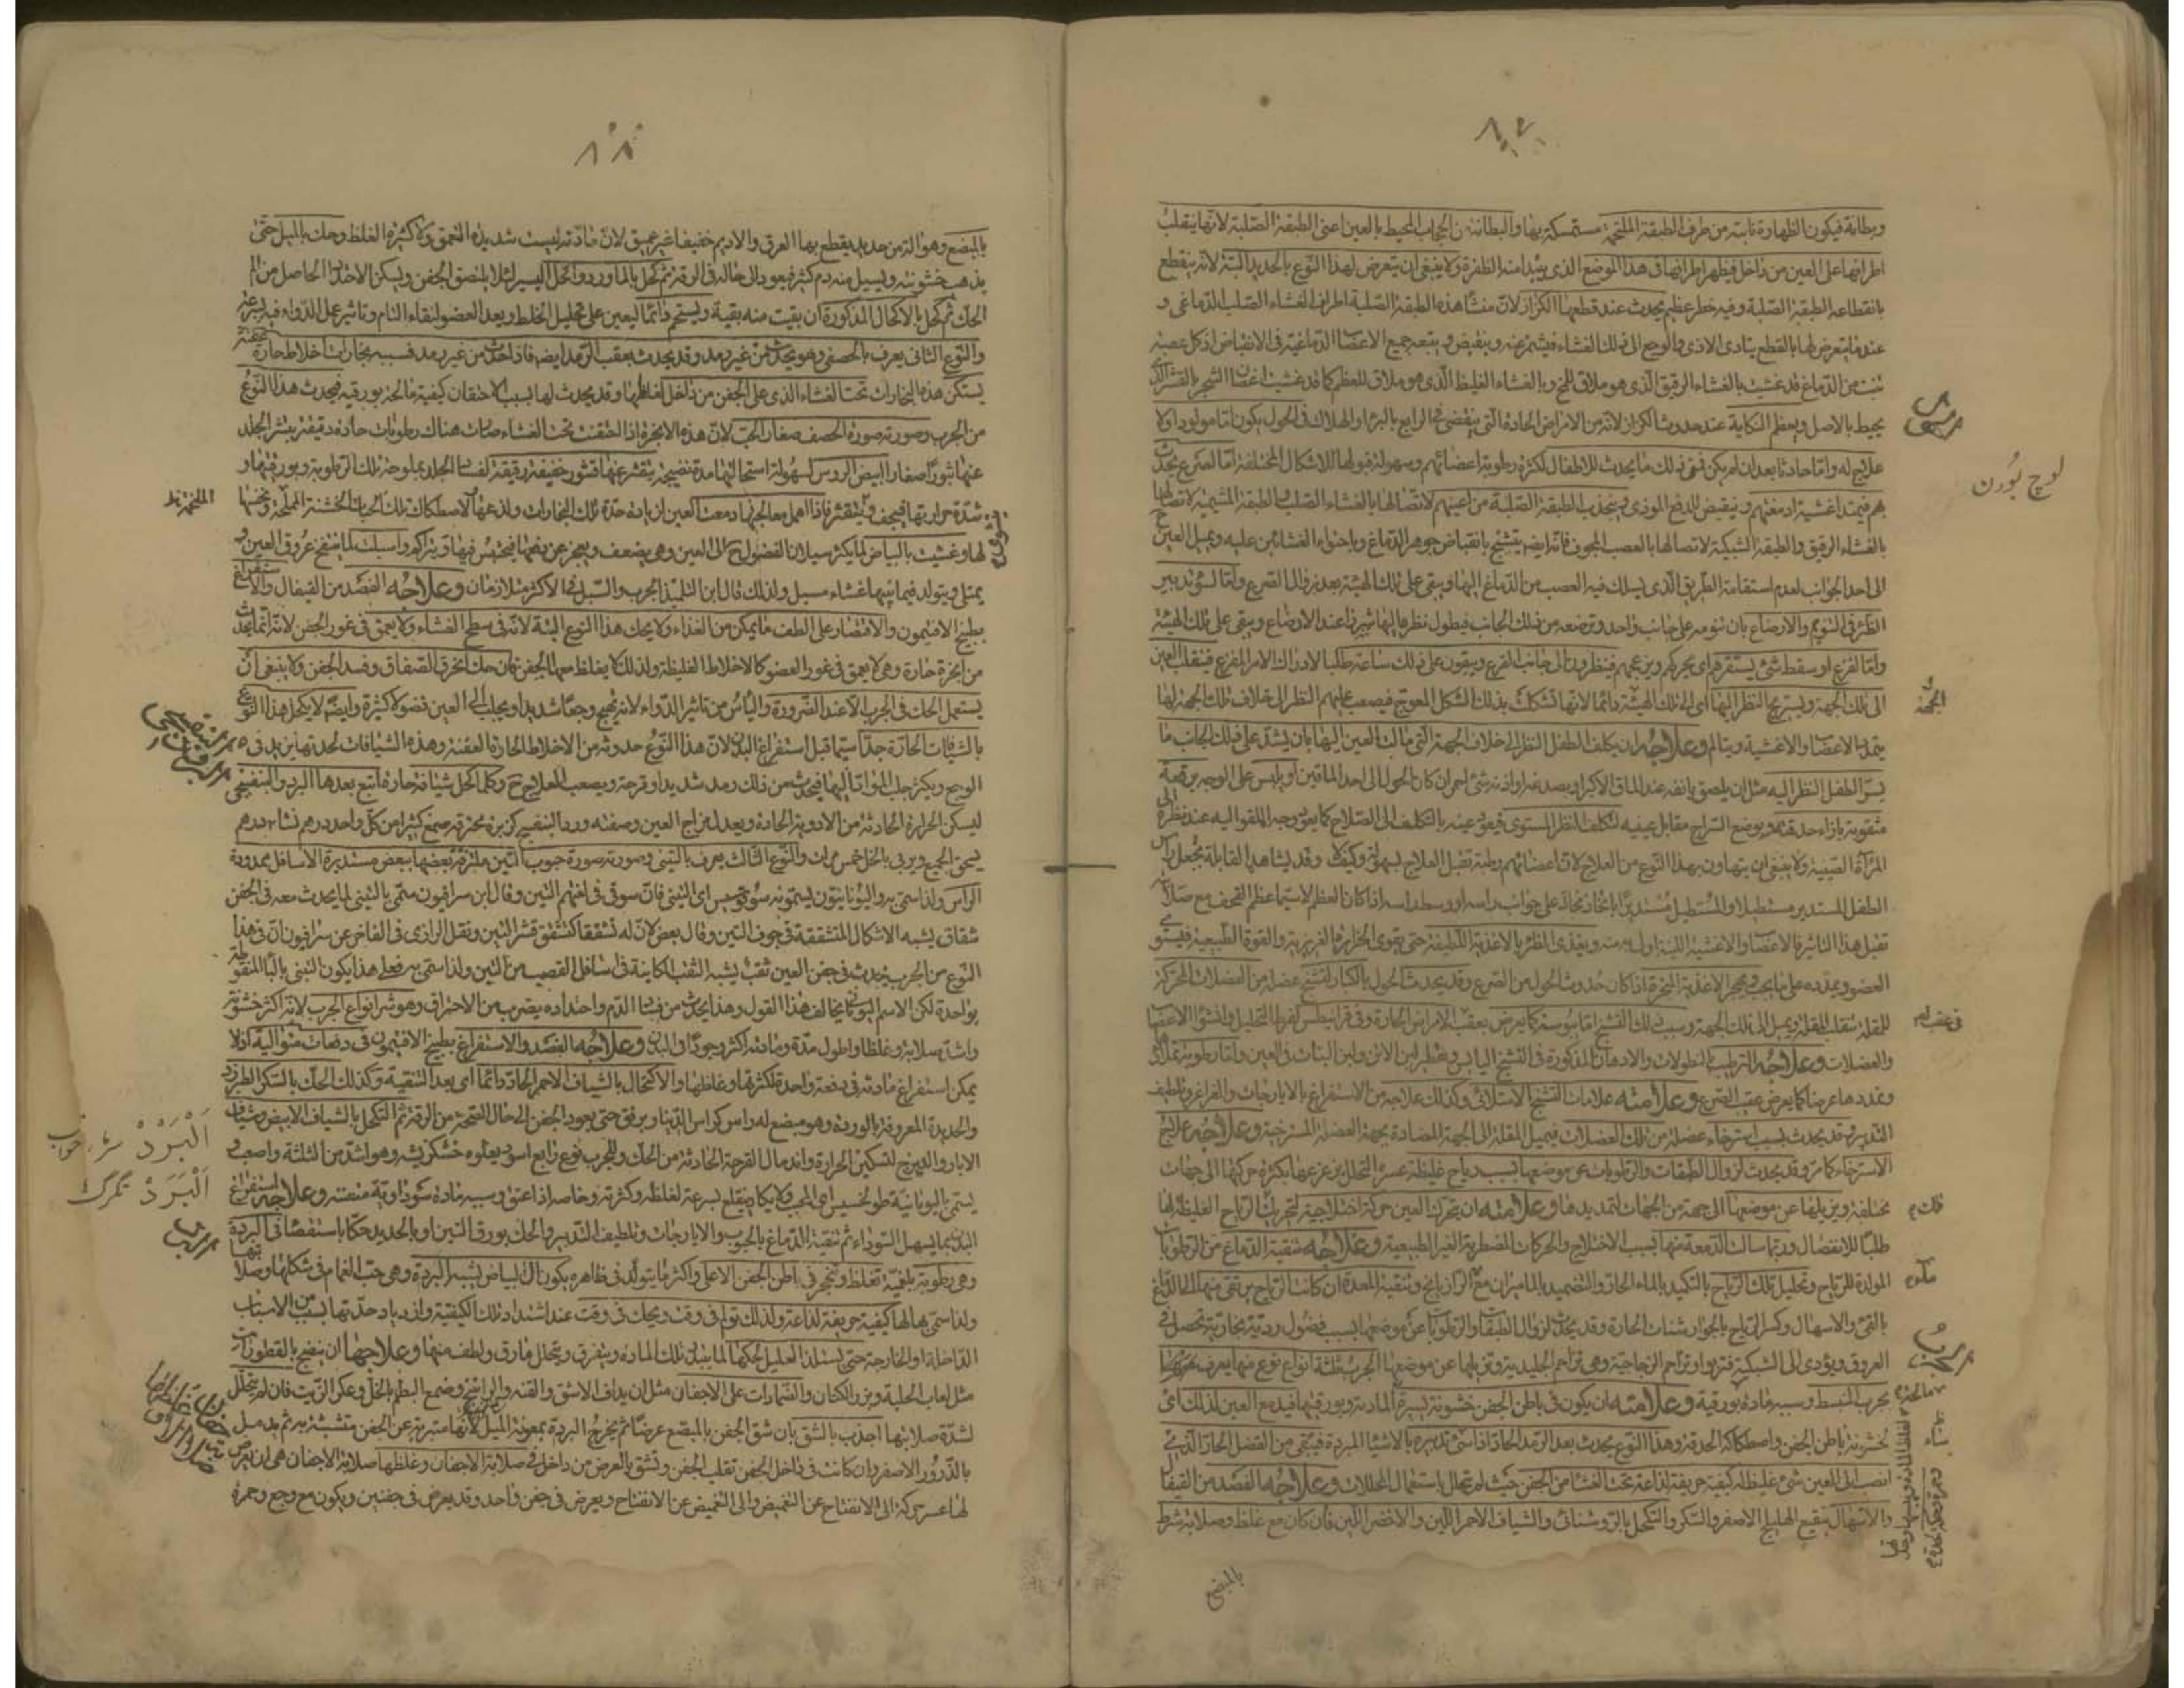 ٨٧
وبطانة فيكون الظهارة نابتة من طرف الطبقة الملتحمة مستمسكة بها والبطانة من الحجاب المحيط بالعين اعنى الطبقة الصلبة لانها ينقلب
اطرافها على العين من داخل فيظهر اطرافها فى هذا الموضع الذى يبتدأ منه الظفرة ولا ينبغى ان يتعرض لهذا النوع بالحديد البتة لانه ينقطع
بانقطاعه الطبقة الصلبة وفيه خطر عظيم يحدث عند قطعها الكزاز لان منشأ هذه الطبقة الصلبة اطراف الغشاء الصلب الدماغى و
عندما يتعرض لها بالقطع يتادى الاذى والوجع الى ذلك الغشاء فيشمئز عنه وينقبض ويتبعه جميع الاعضاء الدماغية فى الانقباض اذ كل عصبة
نبتت من الدماغ قد غشيت بالغشاء الرقيق الذى هو ملاق للمخ وبالغشاء الغليظ الذى هو ملاق للعظم كما قد غشيت اغصان الشجر بالقشر الذى
يحيط بالاصل ويعظم النكاية عند حدوث الكزاز لانه من الامراض الحادة التى ينقضى فى الرابع بالبرء او الهلاك فى الحول يكون اما مولودا ولا
علاج له واما حادثا بعد ان لم يكن فمن ذلك ما يحدث للاطفال لكثرة رطوبة اعضائهم وسهولة قبولها للاشكال المختلفة اما لصرع يحدث
بهم فيمتد اغشية ادمغتهم وينقبض لدفع الموذى وينجذب الطبقة الصلبة من اعينهم لاتصالها بالغشاء الصلب والطبقة المشيمية لاتصالها
بالغشاء الرقيق والطبقة الشبكية لاتصالها بالعصب المجوف فانه ايضا يتشنج بانقباض جوهر الدماغ وباحتواء الغشائين عليه ويميل العين
الى احد الجوانب لعدم استقامة الطريق الذى يسلك فيه العصب من الدماغ اليها ويبقى على تلك الهيئة بعد زوال الصرع واما لسوء تدبير
الظئر فى التنويم والارضاع بان ينومه على جانب واحد وترضعه من ذلك الجانب فيطول نظره اليها شزرا عند الارضاع ويبقى على تلك الهيئة
واما لفزع او سقط شئ يستفزهم اى يحركهم ويزعجهم فينظرون الى جانب الفزع ويبقون على ذلك ساعة طلبا لادراك الامر المفزع فينقلب العين
الى تلك الجهة ويستريح النظر اليها اى الى تلك الهيئة دائما لانها تشكلت بذلك الشكل المعوج فيصعب عليهم النظر الى خلاف تلك الجهة لها
يتمدد الاعضاء والاغشية ويتالم وعلاجه ان يكلف الطفل النظر الى خلاف الجهة التى مالت العين اليها بان يشد على ذلك الجانب ما
يسر الطفل النظر اليه مثل ان يلصق بانفه عند الماق الاكبر او بصدغه او اذنه شئ احمر ان كان الحول الى احد الماقين او يلبس على الوجه برقعة
مثقوبة بازاء حدقته ويوضع السراج مقابل عينيه لتكلف النظر المستوى فيعود عينه بالتكليف الى الصلاح كما يعود وجه الملقو اليه عند نظره الى
المرآة الصينية ولا ينبغى ان يتهاون بهذا النوع من العلاج لان اعضائهم رطبة تقبل العلاج بسهولة وكيف لا وقد يشاهد القابلة يجعل رأس
الطفل المستدير مستطيلا والمستطيل مستديرا باتخاذ مخاد على جوانب راسه او وسط راسه اذا كان العظم لاسيما عظم القحف مع صلابته
تقبل هذا التاثير فالاعضاء والاغشية اللينة اولى به منه ويغذى الظئر بالاغذية اللطيفة حتى يقوى الحرارة الغريزية والقوة الطبيعية فيستوى
العضو ويمدده على ما يجب ويهجر الاغذية المبخرة اذا كان حدوث الحول من الصرع وقد يحدث الحول بالكبار لتشنج عضلة من العضلات المحركة
للمقلة تتقلب المقلة ويميل الى تلك الجهة وسبب ذلك التشنج اما يبوسة كما يعرض بعقب الامراض الحارة وفى قرانيطس لفرط التحليل ونشف الاعضاء
والعضلات وعلاجه الترطيب بالنطولات والادهان المذكورة فى التشنج اليابس وتقطير لبن الاتن ولبن البنات فى العين واما رطوبة تملأها
وتمددها عرضا كما يعرض عقب الصرع وعلامته علامات التشنج الامتلائى وكذلك علاجه من الاستفراغ بالايارجات والغراغر وتلطيف
التدبير وقد يحدث بسبب استرخاء عضلة من تلك العضلات فيميل المقلة الى الجهة المضادة لجهة العضلة المسترخية وعلاجه علاج
الاسترخاء كما مر وقد يحدث لزوال الطبقات والرطوبات عن موضعها بسبب رياح غليظة عسرة التحلل يزعزعها بكثرة حركتها الى جهات
مختلفة ويزيلها عن موضعها الى جهة من الجهات لتمديدها وعلامته ان يتحرك العين حركة اختلاجية لتحريك الرياح الغليظة لها
طلبا للانفصال وربما سالت الدمعة منها بسبب الاختلاج والحركات المضطربة الغير الطبيعية وعلاجه تنقية الدماغ من الرطوبات
المولدة للرياح وتحليل تلك الرياح بالتكميد بالماء الحار والتضميد بالماميران مع الرازيانج وتنقية المعدة ان كانت الرياح يرتقى منها الى الدماغ
بالقئ والاسهال وكسر الرياح بالجوارشنات الحارة وقد يحدث لزوال الطبقات والرطوبات عن موضعها بسبب فضول ردية بخارية تحصل فى
العروق ويؤدى الى الشبكية فتربو او تزاحم الزجاجية وهى تزاحم الجليدية وتزيلها عن موضعها الجرب ثلثة انواع نوع منها يعرف
بجرب المنبسط وسببه مادة بورقية وعلامته ان يكون فى باطن الجفن خشونة يسيرة لحدة المادة وبورقيتها فيدمع العين لذلك اى
لخشونة باطن الجفن واصطكاكه الحدقة وهذا النوع يحدث بعد الرمد الحاد اذا اسئ تدبيره بالاشياء المبردة فيبقى من الفضل الحاد الذى
انصب الى العين شئ غليظ له كيفية حريفة لذاعة تحت الغشاء من الجفن حيث لم تحال باستعمال المحللات وعلاجه الفصد من القيفال
والاسهال بنقيع الهليلج الاصفر والسكر والتكحل بالروشنائى والشياف الاحمر اللين والاخضر اللين فان كان مع غلظ وصلابة شرط
بالمبضع
لوچ بودن
الجهة
الجرب
٨٨
بالمبضع وهو آلة من حديد يقطع بها العرق والاديم خفيفا غير عميق لان مادته ليست شديدة التعمق ولا كثيرة الغلظ وحك بالميل حتى
يذهب خشونته ويسيل منه دم كثير فيعود الى حاله فى الرقة ثم كحل بالماورد والخل اليسير لئلا يلتصق الجفن ويسكن الاحتداد الحاصل من الم
الحك ثم كحل بالاكحال المذكورة ان بقيت منه بقية ويستحم دائما ليعين على تحليل الخلط ويعد العضو لنقاء التام وتاثير عمل الدواء فيه بسرعة
والنوع الثانى يعرف بالحصفى وهو يحدث من غير رمد وقد يحدث بعقب الرمد ايضا فاذا حدث من غير رمد فسببه بخارات اخلاط حارة عفنة
يستكن هذه البخارات تحت الغشاء الذى على الجفن من داخل لغلظها وقد يحدث لها بسبب الاحتقان كيفية مالحة بورقية فيحدث هذا النوع
من الجرب وصورته صورة الحصف صغار الحب لان هذه الابخرة اذا احتقنت تحت الغشاء صارت هناك رطوبات حادة رقيقة ينتثر الجلد
عنها بثورا صغارا بيض الروس لسهولة استحالتها مدة نضيجة يتقشر عنها قشور خفيفة رقيقة لفساد الجلد بملوحة تلك الرطوبة وبورقيتها و
شدة حرارتها فيجف ويتقشر فاذا اهمل معالجتها دمعت العين لزيادة حدة تلك البخارات ولذعها لاصطكاك تلك الحبات الخشنة الملتحمة ونخسها
لها وغشيت بالبياض لما يكثر سيلان الفضول الى العين وهى يضعف ويعجز عن دفعها فيحتبس فيها ويتراكم واسبلت لما ينتفخ عروق العين و
يمتلى ويتولد فيما بينها غشاء مسبل ولذلك قال ابن التلميذ الجرب والسبل فى الاكثر متلازمان وعلاجه الفصد من القيفال والاستفراغ
بطبيخ الافتيمون والاقتصار على الطف ما يمكن من الغذاء ولا يحك هذا النوع البتة لانه فى سطح الغشاء ولا يتعمق فى غور الجفن لانه انما يحدث
من ابخرة حارة وهى لا يعمق فى غور العضو كالاخلاط الغليظة ولذلك لا يغلظ معها الجفن فان حك انخرق الصفاق وفسد الجفن ولا ينبغى ان
يستعمل الحك فى الجرب الا عند الضرورة والياس من تاثير الدواء لانه يهيج وجعا شديدا ويجلب الى العين فضولا كثيرة وايضا لا يكحل هذا النوع
بالشيافات الحارة جدا سيما قبل استفراغ البدن لان هذا النوع حدوثه من الاخلاط الحارة العفنة وهذه الشيافات لحدتها يزيد فى
الوجع ويكثر جلب المواد اليها فيحدث من ذلك رمد شديد او قرحة ويصعب العلاج ح وكلما كحل بشيافة حارة اتبع بعدها البرد والبنفسجى
ليسكن الحرارة الحادثة من الادوية الحادة ويعدل مزاج العين وصفته ورد البنفسج كزبرة محرقة صمغ كثيرا من كل واحد درهم نشا درهم
يسحق الجميع ويربى بالخل خمس مرات والنوع الثالث يعرف بالتينى وصورته صورة حبوب التين ملتزقة بعضها ببعض مستديرة الاسافل محدودة
الراس ولذا سمى به واليونانيون يسمونه سوقوسيس اى التينى فان سوقى فى لغتهم التين وقال ابن سرافيون سمى بالتينى لما يحدث معه فى الجفن
شقاق يشبه الاشكال المتشققة فى جوف التين وقال بعض لان له تشققا كتشقق قشر التين ونقل الرازى فى الفاخر عن سرافيون ان فى هذا
النوع من الجرب يحدث فى جفن العين ثقب يشبه الثقب الكاينة فى اسافل القصب من التين ولذا سمى به فعلى هذا يكون التبنى بالباء المنقوطة
بواحدة لكن الاسم اليونانى يخالف هذا القول وهذا يحدث من فساد الدم واحتداده بضرب من الاحتراق وهو شر انواع الجرب لانه اكثر خشونة
واشد صلابة وغلظا واطول مدة ومادته اكثر وجودا فى البدن وعلاجه الفصد والاستفراغ بطبيخ الافتيمون فى دفعات متوالية اذ لا
يمكن استفراغ مادته فى دفعة واحدة لكثرتها وغلظها والاكتحال بالشياف الاحمر الحاد دائما اى بعد التنقية وكذلك الحك بالسكر الطبرزد
والحديدة المعروفة بالوردة وهو مبضع له راس كراس الدينار برفق حتى يعود الجفن الى حال الصحة من الرقة ثم التكحل بالشياف الابيض وشياف
الابار والديزج لتسكين الحرارة واندمال القرحة الحادثة من الحك وللجرب نوع رابع اسود يعلوه خشكريشة وهو اشد من الثلثة واصعب و
يسمى باليونانية طولخسيس ولا يكاد ينقلع بسرعة لغلظه وكثرته وخاصة اذا عتق وسببه مادة سوداوية متعفنة وعلاجه استفراغ
البدن بما يسهل السوداء ثم تنقية الدماغ بالحبوب والايارجات وتلطيف التدبير والحك بورق التين او بالحديد حكا باستقصاء فى البردة
وهى رطوبة بلغمية تغلظ وتتحجر فى باطن الجفن الاعلى واكثر ما يتولد فى ظاهره يكون الى البياض يشبه البردة وهى حب الغمام فى شكلها وصلابتها
ولذا سمى بها لها كيفية حريفة لذاعة ولذلك تولم فى وقت ويحك فى وقت عند اشتداد تلك الكيفية وازدياد حدتها بسبب من الاسباب
الداخلة او الخارجة حتى يستلذ العليل لحكها لما يتبدل تلك المادة ويتفرق ويتحلل ما رق ولطف منها وعلاجها ان ينضج بالقطورات
مثل لعاب الحلبة وبزر الكتان والضمادات على الاجفان مثل ان يداف الاشق والقنه والراتينج وصمغ البطم بالخل وعكر الزيت فان لم يتحلل
لشدة صلابتها اجذب بالشق بان شق الجفن بالمبضع عرضا ثم يخرج البردة بمعونة الميل لانها متبرية عن الجفن متشبثة به ثم يدمل
بالذرور الاصفر وان كانت فى داخل الجفن تقلب الجفن وتشق بالعرض من داخل فى صلابة الاجفان وغلظها صلابة الاجفان هى ان يعرض
لها عسر حركة الى الانفتاح عن التغميض والى التغميض عن الانفتاح ويعرض فى جفن واحد وقد يعرض فى جفنين ويكون مع وجع وحمرة
اَلْبَرْدْ
اَلْبَرَدْ تگرگ